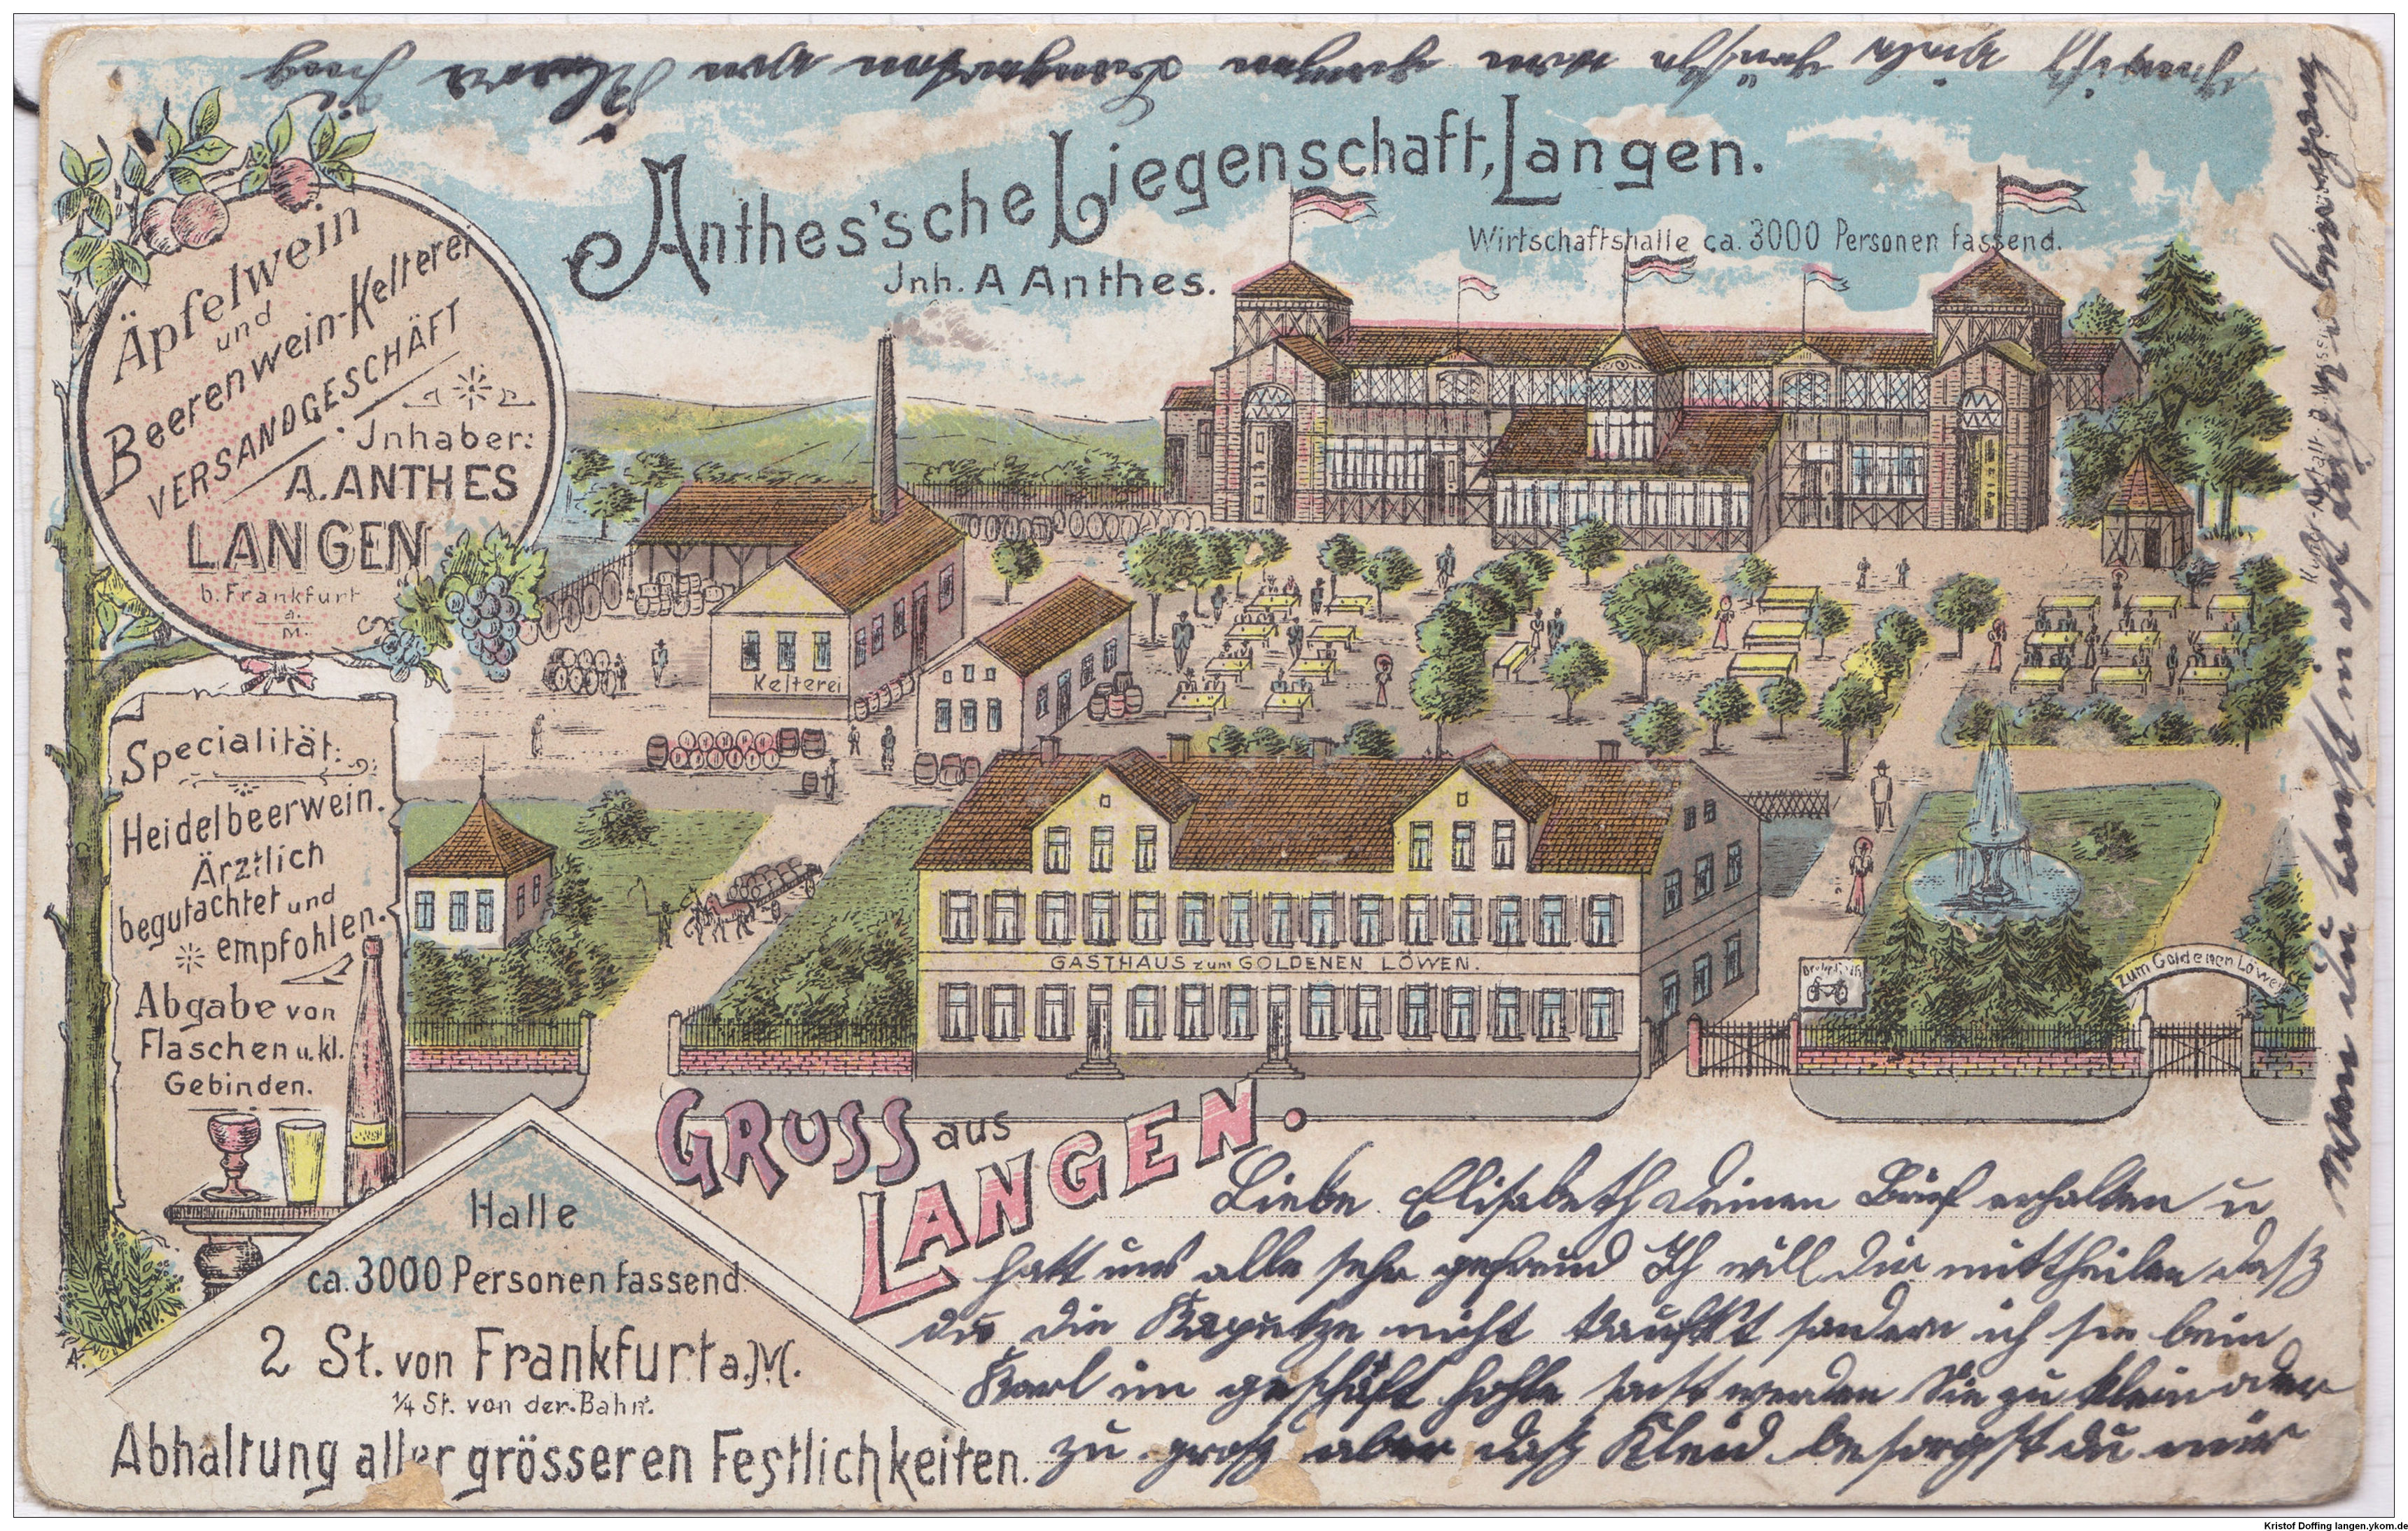 Anthes'sche Liegenschaft, Langen.
Jnh. A Anthes.
Wirtschaftshalle ca. 3000 Personen fassend.
Äpfelwein
und
Beerenwein-Kelterei
VERSANDGESCHÄFT
Jnhaber:
A. ANTHES
LANGEN
b. Frankfurt
a.
M.
Specialität:
Heidelbeerwein.
Ärztlich
begutachtet und
empfohlen.
Abgabe von
Flaschen u. kl.
Gebinden.
Kelterei
GASTHAUS zum GOLDENEN LÖWEN.
zum Goldenen Löwen
GRUSS aus
LANGEN.
Halle
ca. 3000 Personen fassend.
2 St. von Frankfurt a. M.
1/4 St. von der Bahn.
Abhaltung aller grösseren Festlichkeiten.
Liebe Elisabeth deinen Brief erhalten u
hatt uns alle sehr gefreud Ich will dir mittheilen daß
du die Kaputze nicht kaufst sondern ich sie bein
Karl im geschäft hohle sonst werden Sie zu klein oder
zu groß aber daß Kleid besorgst du mir
Kristof Doffing langen.ykom.de